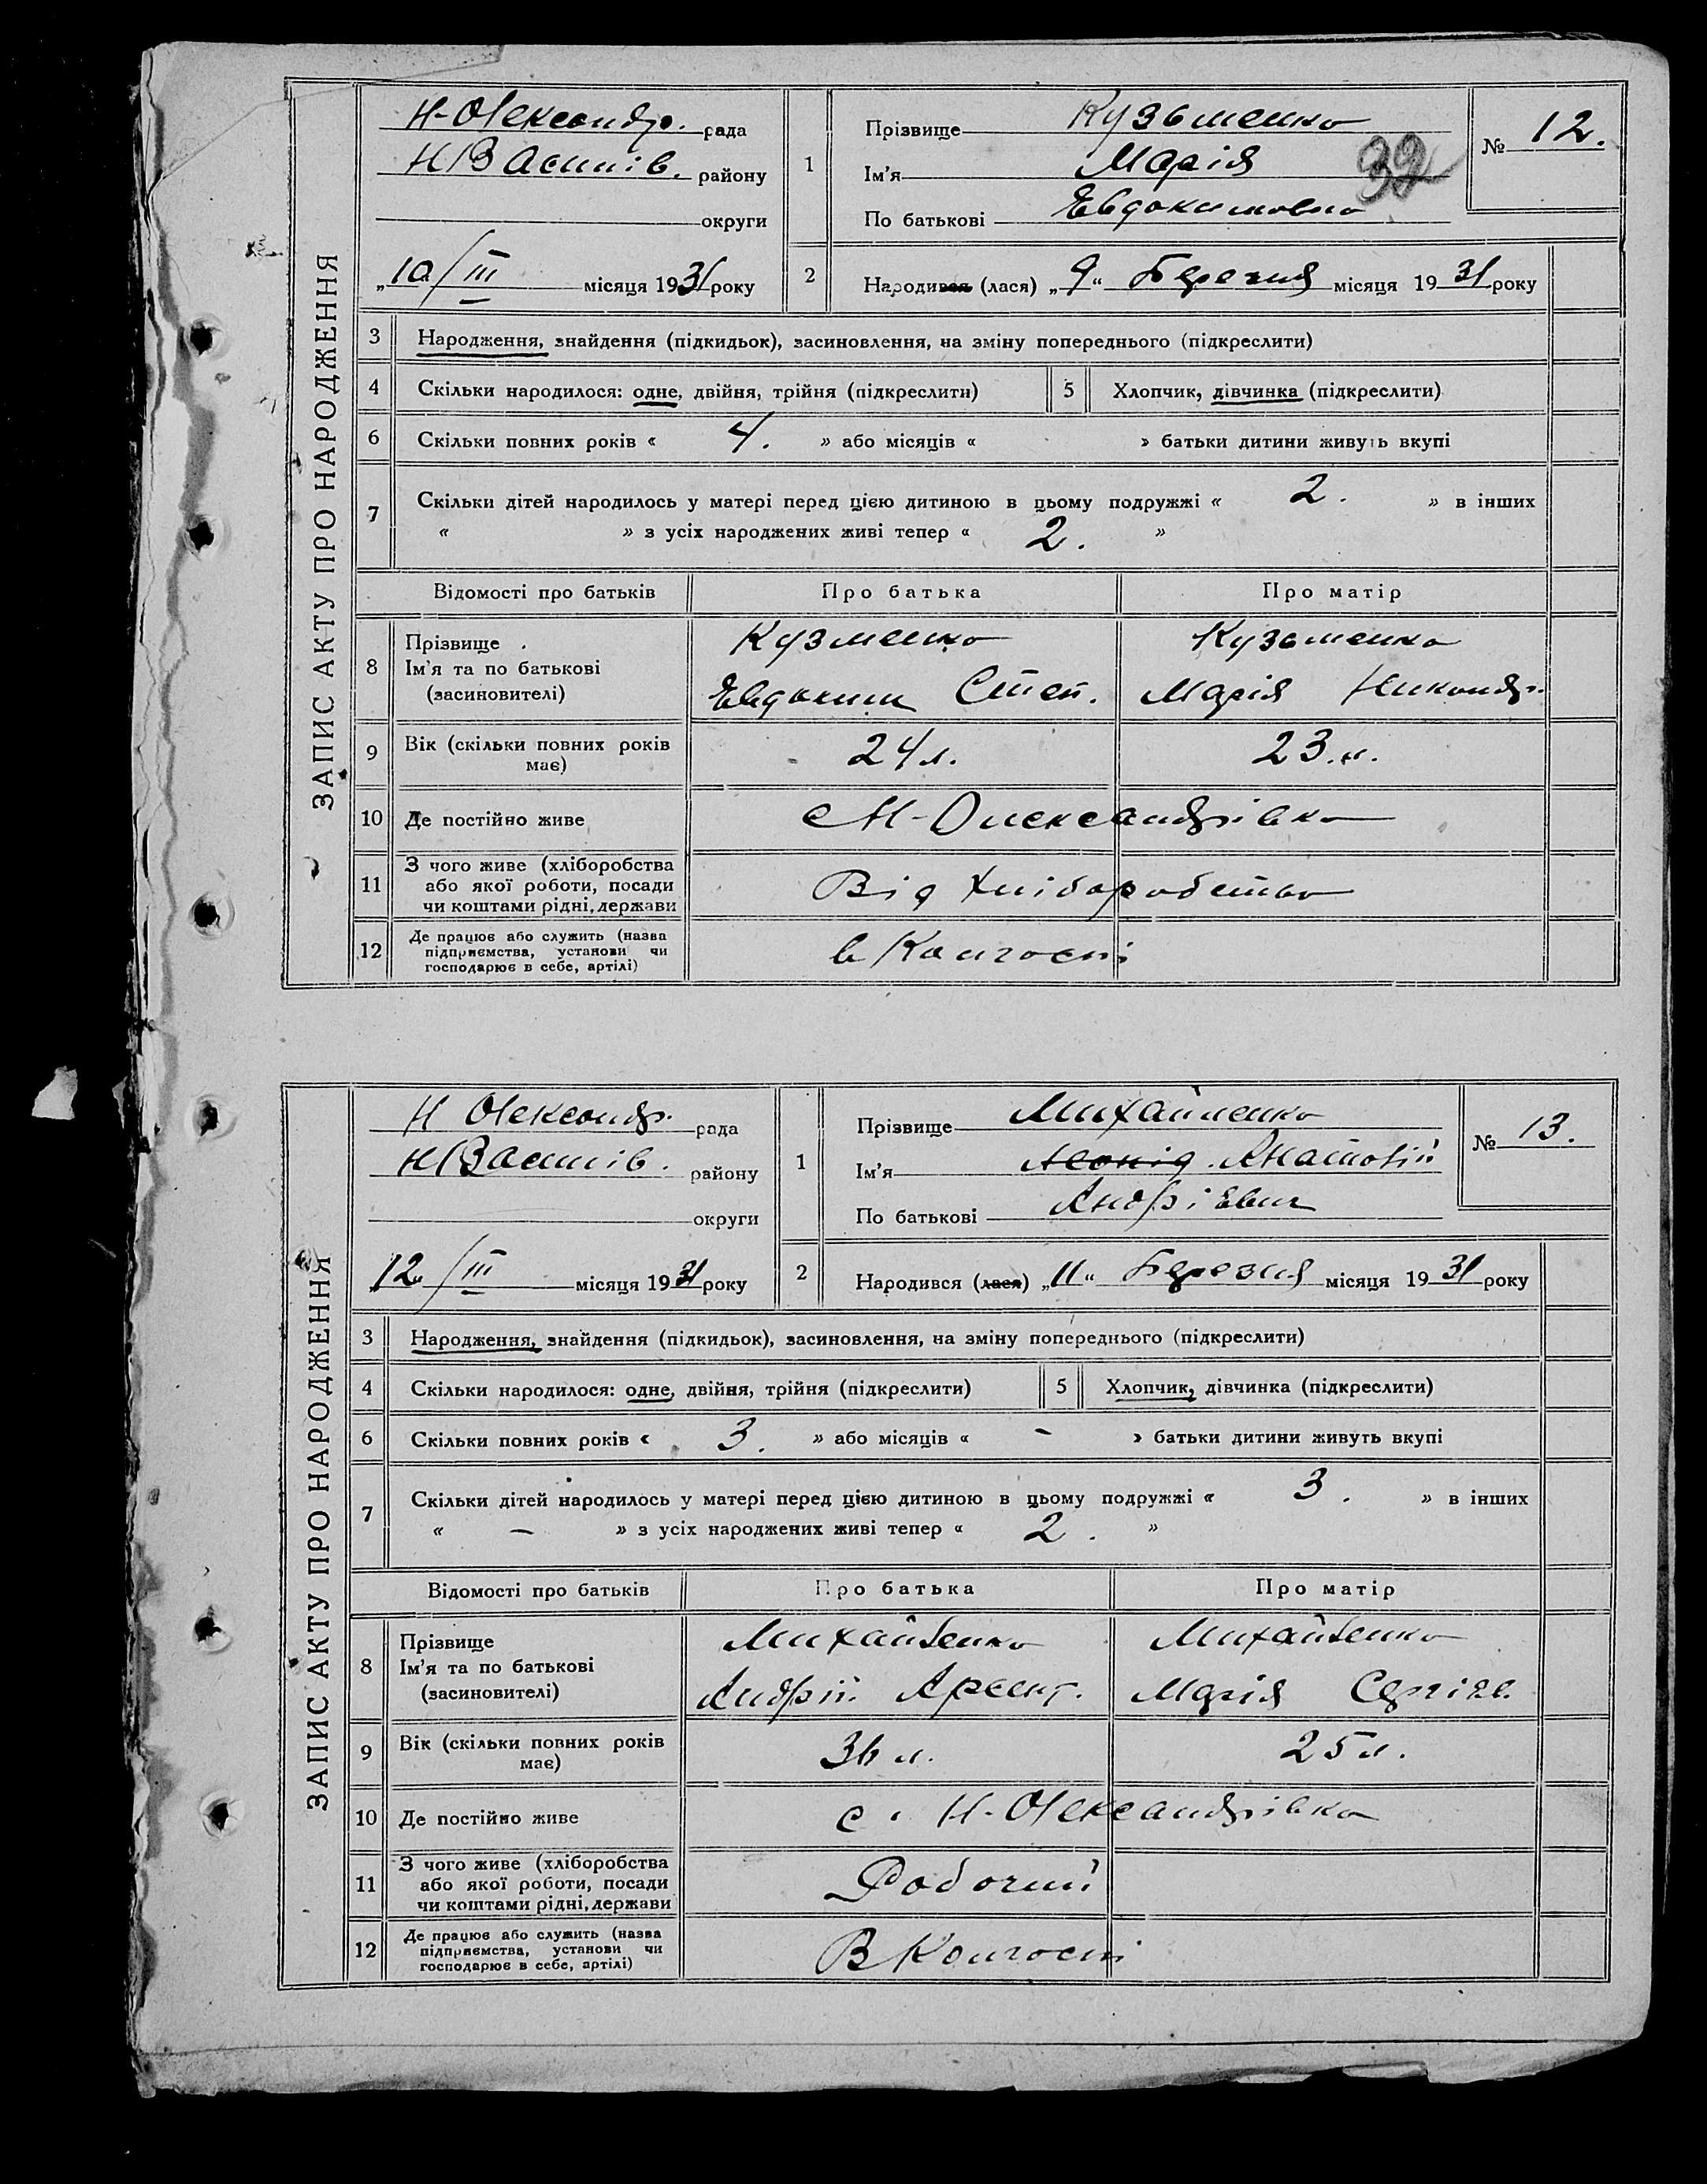 ЗАПИС АКТУ ПРО НАРОДЖЕННЯ
Н-Олександр. рада
НВасилів. району
округи
„10/III місяця 1931 року
1
Прізвище Кузьменко
Ім'я Марія
32
По батькові Евдокимовна
№ 12.
2
Народився (лася) „9“ Березня місяця 1931 року
3 Народження, знайдення (підкидьок), засиновлення, на зміну попереднього (підкреслити)
4 Скільки народилося: одне, двійня, трійня (підкреслити) 5 Хлопчик, дівчинка (підкреслити)
6 Скільки повних років « 4. » або місяців « » батьки дитини живуть вкупі
7 Скільки дітей народилось у матері перед цією дитиною в цьому подружжі « 2. » в інших
« » з усіх народжених живі тепер « 2. »
Відомості про батьків Про батька Про матір
8 Прізвище Кузменко Кузьменко
Ім'я та по батькові
(засновителі) Евдоким Степ. Марія Никондр.
9 Вік (скільки повних років має) 24 л. 23 л.
10 Де постійно живе с Н-Олександрівка
11 З чого живе (хліборобства
або якої роботи, посади
чи коштами рідні, держави Від хліборобства
12 Де працює або служить (назва
підприємства, установи чи
господарює в себе, артілі) в Колгоспі
ЗАПИС АКТУ ПРО НАРОДЖЕННЯ
Н Олександр. рада
НВасилів. району
округи
12/III місяця 1931 року
1
Прізвище Михайленко
Ім'я Леонід. Анатолій
По батькові Андрієвич
№ 13.
2
Народився (лася) „11“ Березня місяця 1931 року
3 Народження, знайдення (підкидьок), засиновлення, на зміну попереднього (підкреслити)
4 Скільки народилося: одне, двійня, трійня (підкреслити) 5 Хлопчик, дівчинка (підкреслити)
6 Скільки повних років « 3. » або місяців « - » батьки дитини живуть вкупі
7 Скільки дітей народилось у матері перед цією дитиною в цьому подружжі « 3. » в інших
« — » з усіх народжених живі тепер « 2. »
Відомості про батьків Про батька Про матір
8 Прізвище Михайленко Михайленко
Ім'я та по батькові
(засиновителі) Андрій Арсент. Марія Сергієв.
9 Вік (скільки повних років має) 36 л. 25 л.
10 Де постійно живе с. Н-Олександрівка
11 З чого живе (хліборобства
або якої роботи, посади
чи коштами рідні, держави Робочий
12 Де працює або служить (назва
підприємства, установи чи
господарює в себе, артілі) В Колгоспі